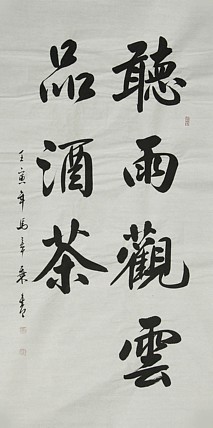 聽雨觀雲
品酒茶
壬寅年馬年